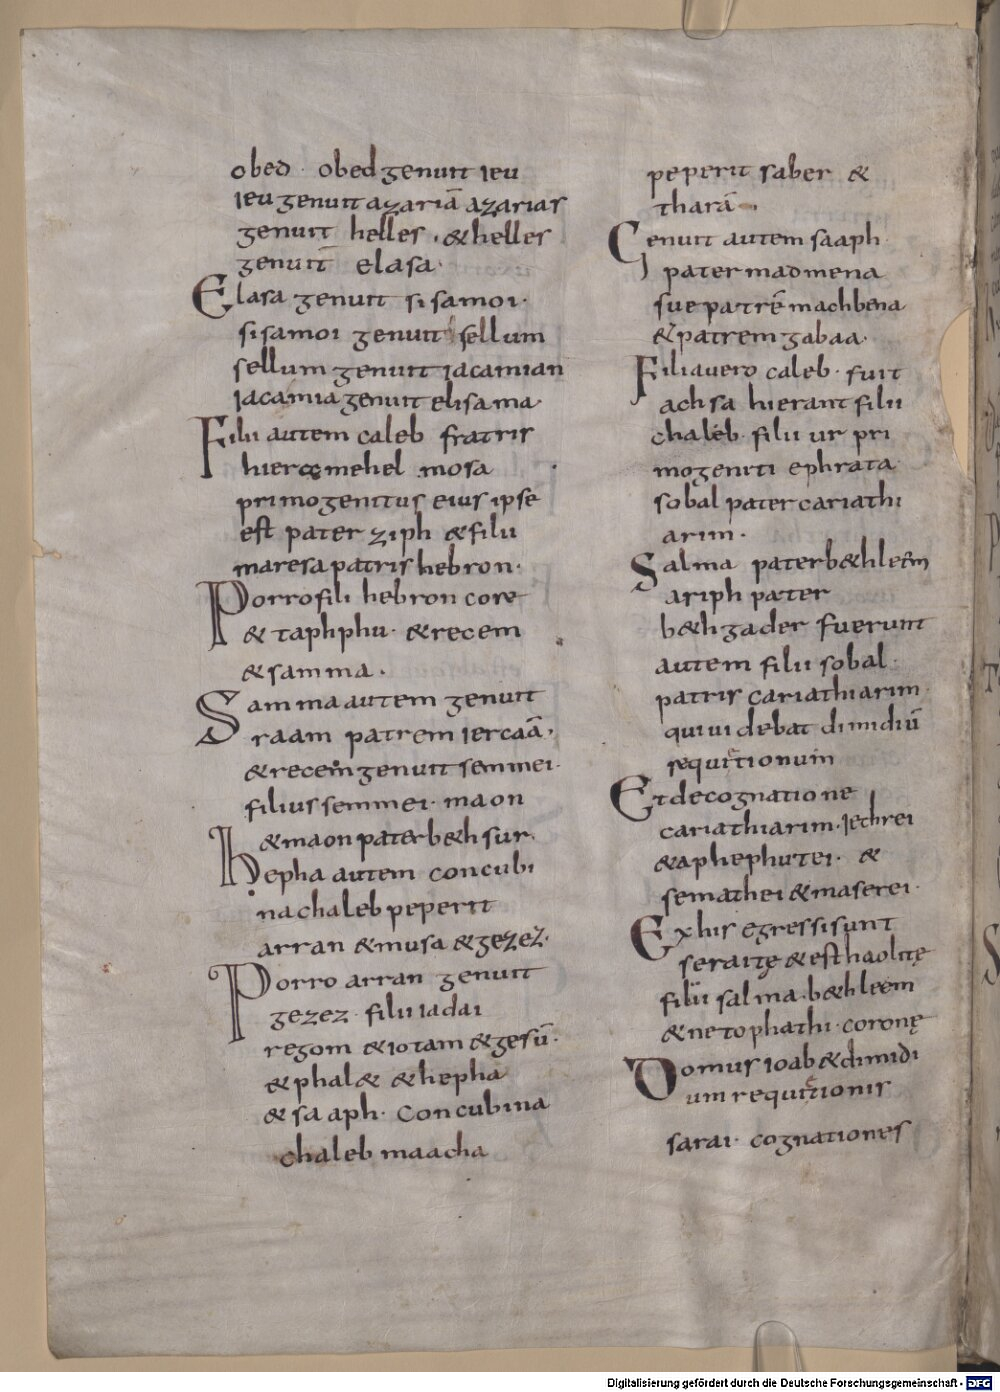 obed · obed genuit ieu
ieu genuit azariā azarias
genuit helles · & helles
genuit elasa ·
Elasa genuit sisamoi ·
sisamoi genuit sellum
sellum genuit iacamian
iacamia genuit elisama ·
Filii autem caleb fratris
hieręmehel mosa
primogenitus eius ipse
est pater ziph & filii
maresa patris hebron ·
Porro fili hebron core
& taphphu · & recem
& samma ·
Samma autem genuit
raam patrem iercaā ·
& recem genuit semmei ·
filius semmei · maon
& maon pater b&hsur ·
hepha autem concubi
na chaleb peperit
arran & musa & gezez ·
Porro arran genuit
gezez · filii iadai
regom & iotam & gesū ·
& phal& & hepha
& saaph · concubina
chaleb maacha
peperit saber &
tharā ·
Genuit autem saaph
pater madmena
sue patrē machbena
& patrem gabaa ·
Filia vero caleb · fuit
achsa hi erant filii
chaleb · filii ur pri
mogeniti ephrata
sobal pater cariathi
arim ·
Salma pater b&hleem
ariph pater
b&hgader fuerunt
autem filii sobal ·
patris cariathiarim ·
qui videbat dimidiū
requitionum
Et de cognatione
cariathiarim · iethrei
& aphephutei · &
semathei & maserei ·
Ex his egressi sunt
seraitę & esthaolitę
filii salma · b&hleem
& netophathi · coronę
Domus ioab & dimidi
um requitionis
sarai · cognationes
Digitalisierung gefördert durch die Deutsche Forschungsgemeinschaft - DFG